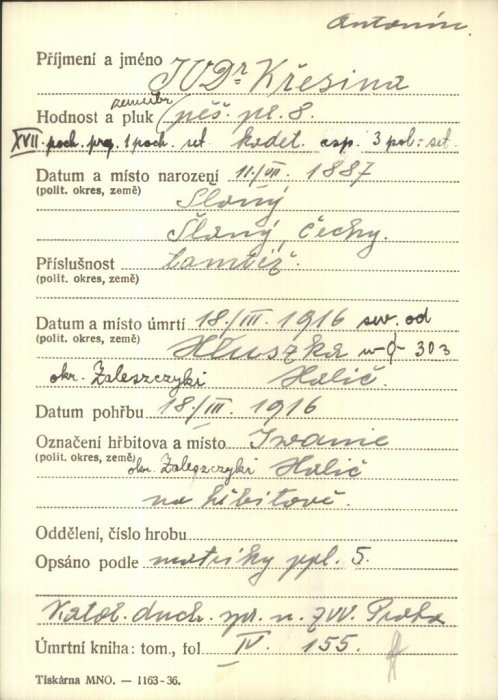 Antonín.
Příjmení a jméno JUDr Křesina
zeměbr.
Hodnost a pluk pěš. pl. 8.
XVII. poch. prap. 1 poch. set. kadet. asp. 3 pol. set.
Datum a místo narození 11./VII. 1887
(polit. okres, země) Slaný
Slaný, Čechy.
Příslušnost tamtéž.
(polit. okres, země)
Datum a místo úmrtí 18./III. 1916 sev. od
(polit. okres, země) Hluszka 303
okr. Zaleszczyki Halič.
Datum pohřbu 18./III. 1916
Označení hřbitova a místo Iwanie
(polit. okres, země) okr. Zaleszczyki Halič
na hřbitově.
Oddělení, číslo hrobu
Opsáno podle matriky ppl. 5.
Katol. duch. spr. n. ZVV. Praha
Úmrtní kniha: tom., fol IV. 155.
Tiskárna MNO. — 1163-36.